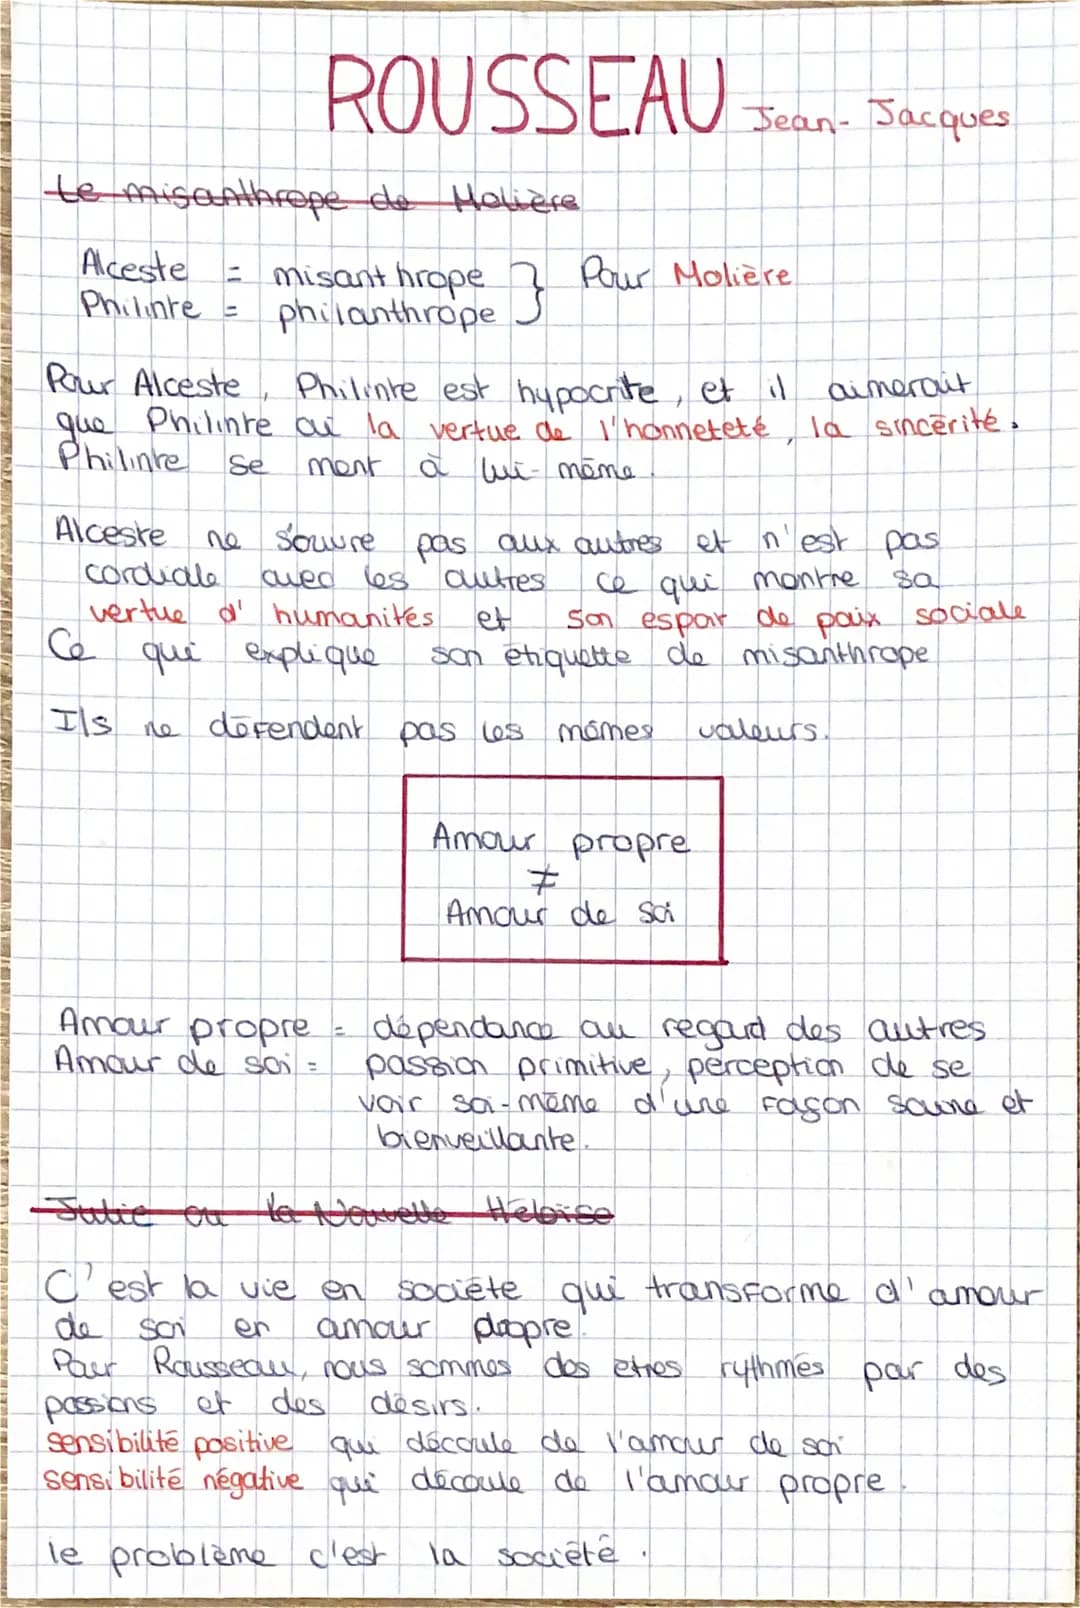 ROUSSEAU Jean-Jacques
Le misanthrope de Molière
Alceste = misanthrope } Pour Molière
Philinte = philanthrope
Pour Alceste, Philinte est hypocrite, et il aimerait
que Philinte ai la vertue de l'honneteté, la sincérité.
Philinte se ment à lui-même.
Alceste ne s'ouvre pas aux autres et n'est pas
cordiale avec les autres ce qui montre sa
vertue d'humanités et son espoir de paix sociale
Ce qui explique son étiquette de misanthrope
Ils ne défendent pas les mêmes valeurs.
Amour propre
≠
Amour de soi
Amour propre = dépendance au regard des autres
Amour de soi = passion primitive, perception de se
voir soi-même d'une façon saine et
bienveillante.
Julie ou la Nouvelle Héloïse
C'est la vie en société qui transforme d'amour
de soi en amour propre.
Pour Rousseau, nous sommes des êtres rythmés par des
passions et des désirs.
sensibilité positive qui découle de l'amour de soi
sensibilité négative qui découle de l'amour propre.
le problème c'est la société.